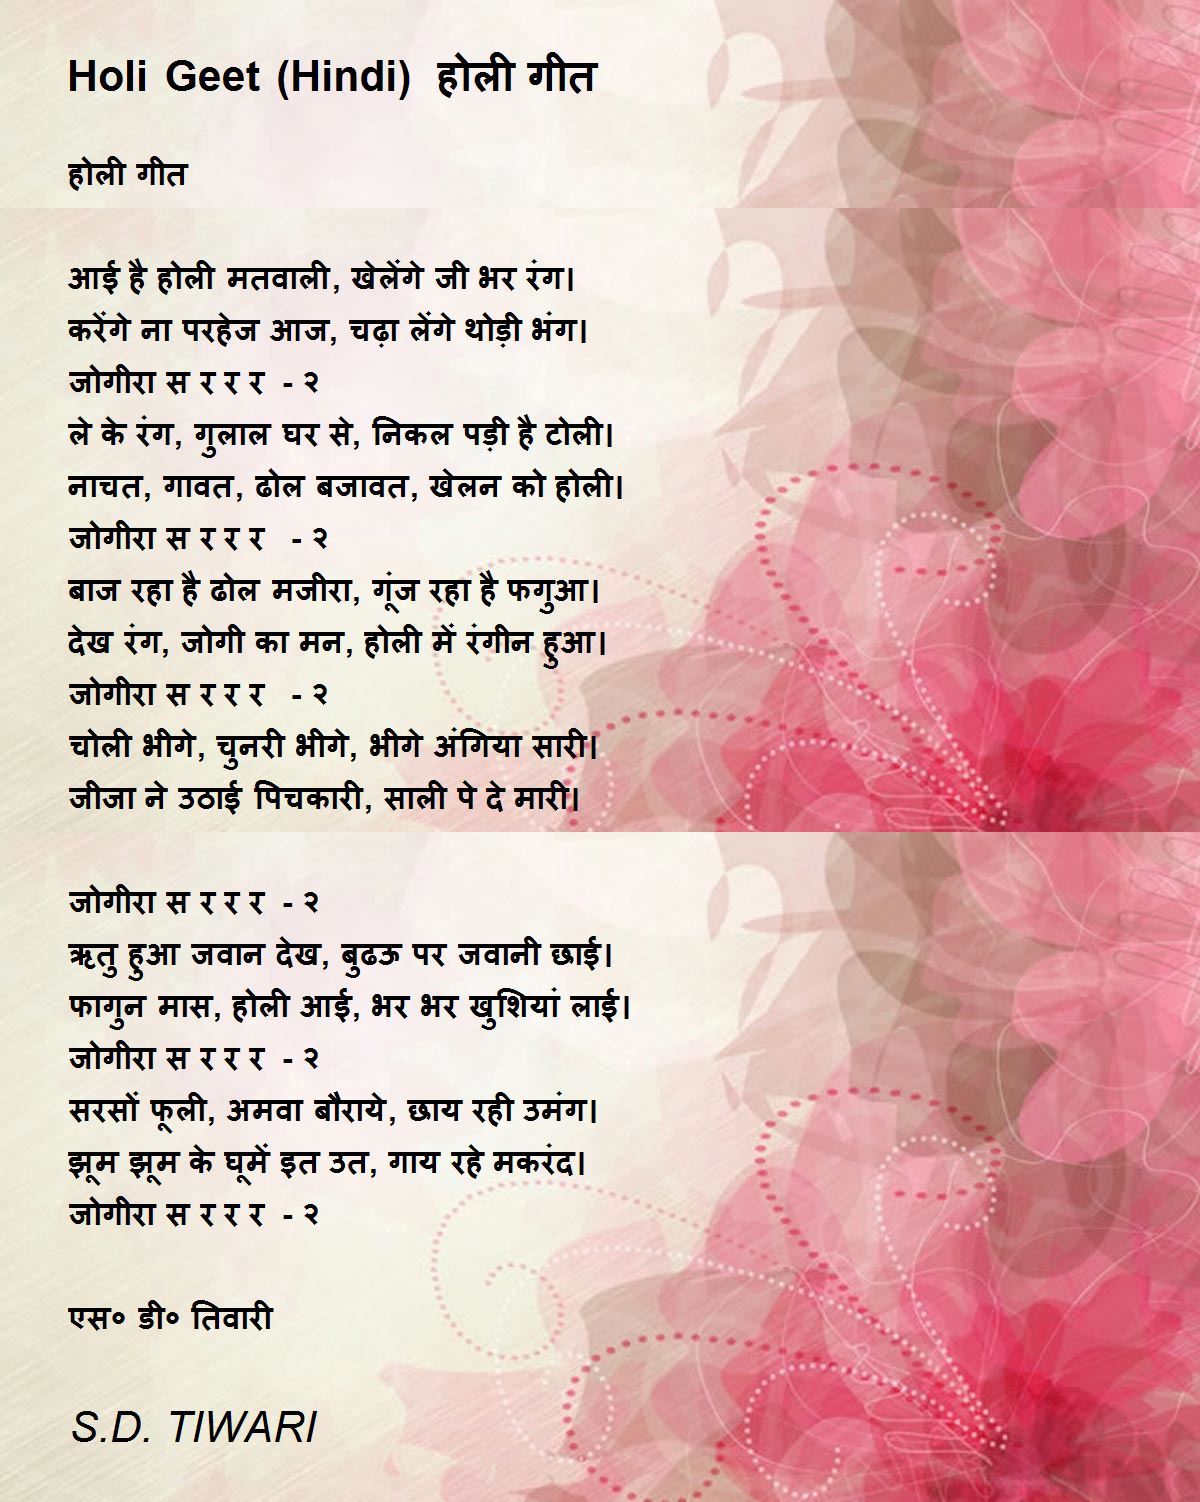 Holi Geet (Hindi) होली गीत
होली गीत
आई है होली मतवाली, खेलेंगे जी भर रंग।
करेंगे ना परहेज आज, चढ़ा लेंगे थोड़ी भंग।
जोगीरा स र र र - २
ले के रंग, गुलाल घर से, निकल पड़ी है टोली।
नाचत, गावत, ढोल बजावत, खेलन को होली।
जोगीरा स र र र - २
बाज रहा है ढोल मजीरा, गूंज रहा है फगुआ।
देख रंग, जोगी का मन, होली में रंगीन हुआ।
जोगीरा स र र र - २
चोली भीगे, चुनरी भीगे, भीगे अंगिया सारी।
जीजा ने उठाई पिचकारी, साली पे दे मारी।
जोगीरा स र र र - २
ऋतु हुआ जवान देख, बुढऊ पर जवानी छाई।
फागुन मास, होली आई, भर भर खुशियां लाई।
जोगीरा स र र र - २
सरसों फूली, अमवा बौराये, छाय रही उमंग।
झूम झूम के घूमें इत उत, गाय रहे मकरंद।
जोगीरा स र र र - २
एस० डी० तिवारी
S.D. TIWARI